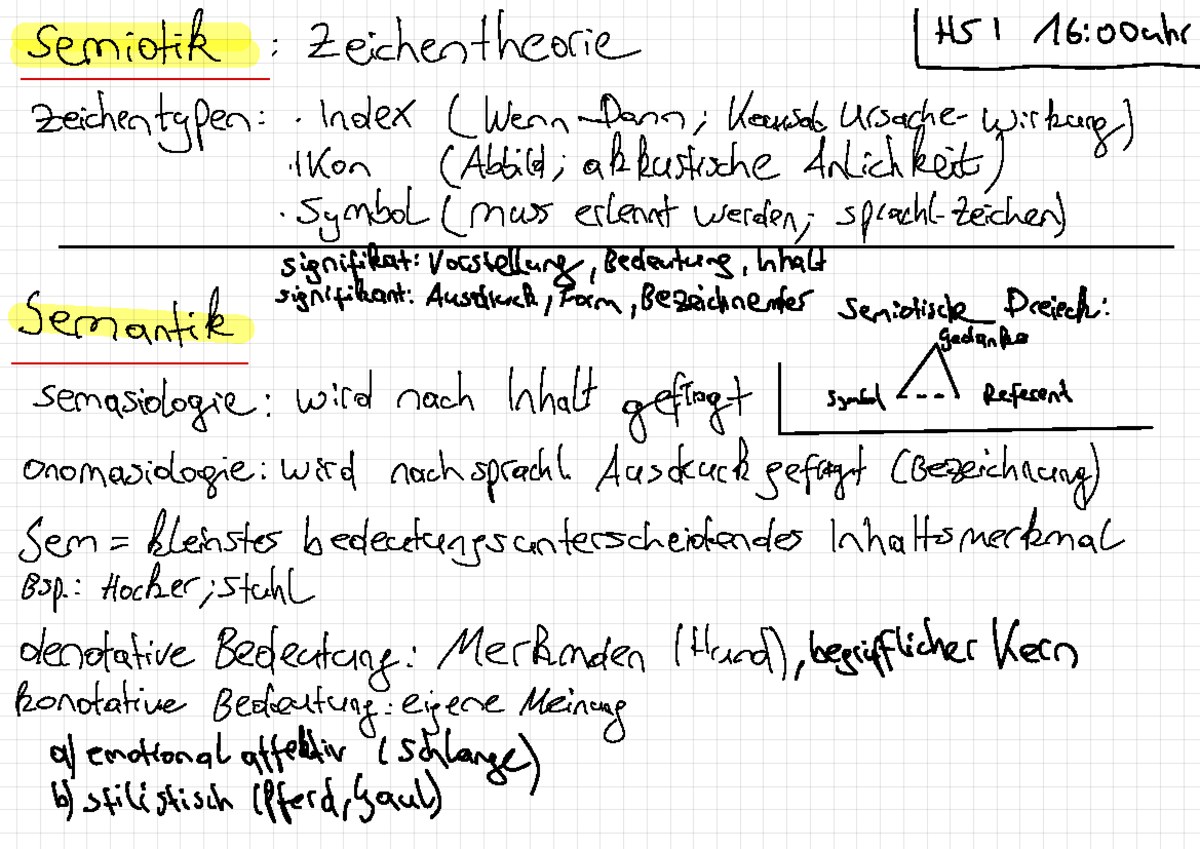 Semiotik : Zeichentheorie
HS 1 16:00 uhr
Zeichentypen: · Index (Wenn-Dann; Kausal Ursache-Wirkung)
· Ikon (Abbild; akkustische Änlichkeit)
· Symbol (muss erlernt werden; sprachl-Zeichen)
signifikat: Vorstellung, Bedeutung, Inhalt
signifikant: Ausdruck, Form, Bezeichnendes
Semantik
Semiotische Dreieck:
Gedanke
Symbol Referent
semasiologie: wird nach Inhalt gefragt
onomasiologie: wird nach sprachl. Ausdruck gefragt (Bezeichnung)
Sem = kleinstes bedeutungsunterscheidendes Inhaltsmerkmal
Bsp.: Hocker; Stuhl
denotative Bedeutung: (Hund), begrifflicher Kern
konotative Bedeutung: eigene Meinung
a) emotional affektiv (Schlange)
b) stilistisch (Pferd, Gaul)